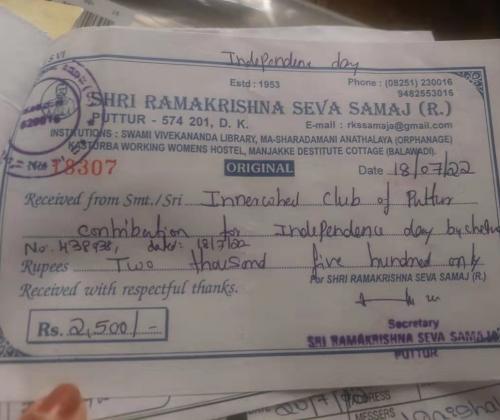 Independence day
Estd : 1953
Phone : (08251) 230016
9482553016
SHRI RAMAKRISHNA SEVA SAMAJ (R.)
PUTTUR - 574 201, D. K.
E-mail : rkssamaja@gmail.com
INSTITUTIONS : SWAMI VIVEKANANDA LIBRARY, MA-SHARADAMANI ANATHALAYA (ORPHANAGE)
KASTURBA WORKING WOMENS HOSTEL, MANJAKKE DESTITUTE COTTAGE (BALAWADI).
18307
ORIGINAL
Date 18/07/22
Received from Smt./Sri. Innerwheel Club of Puttur
contribution for Independence day by
No. dated: 18/7/22
Rupees Two thousand five hundred only
For SHRI RAMAKRISHNA SEVA SAMAJ (R.)
Received with respectful thanks.
Rs. 2,500/-
Secretary
SRI RAMAKRISHNA SEVA SAMAJ
PUTTUR
ADDRESS
MESSERS